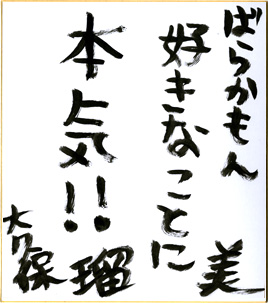 ばらかもん
好きなことに
本気!!
大久保瑠美